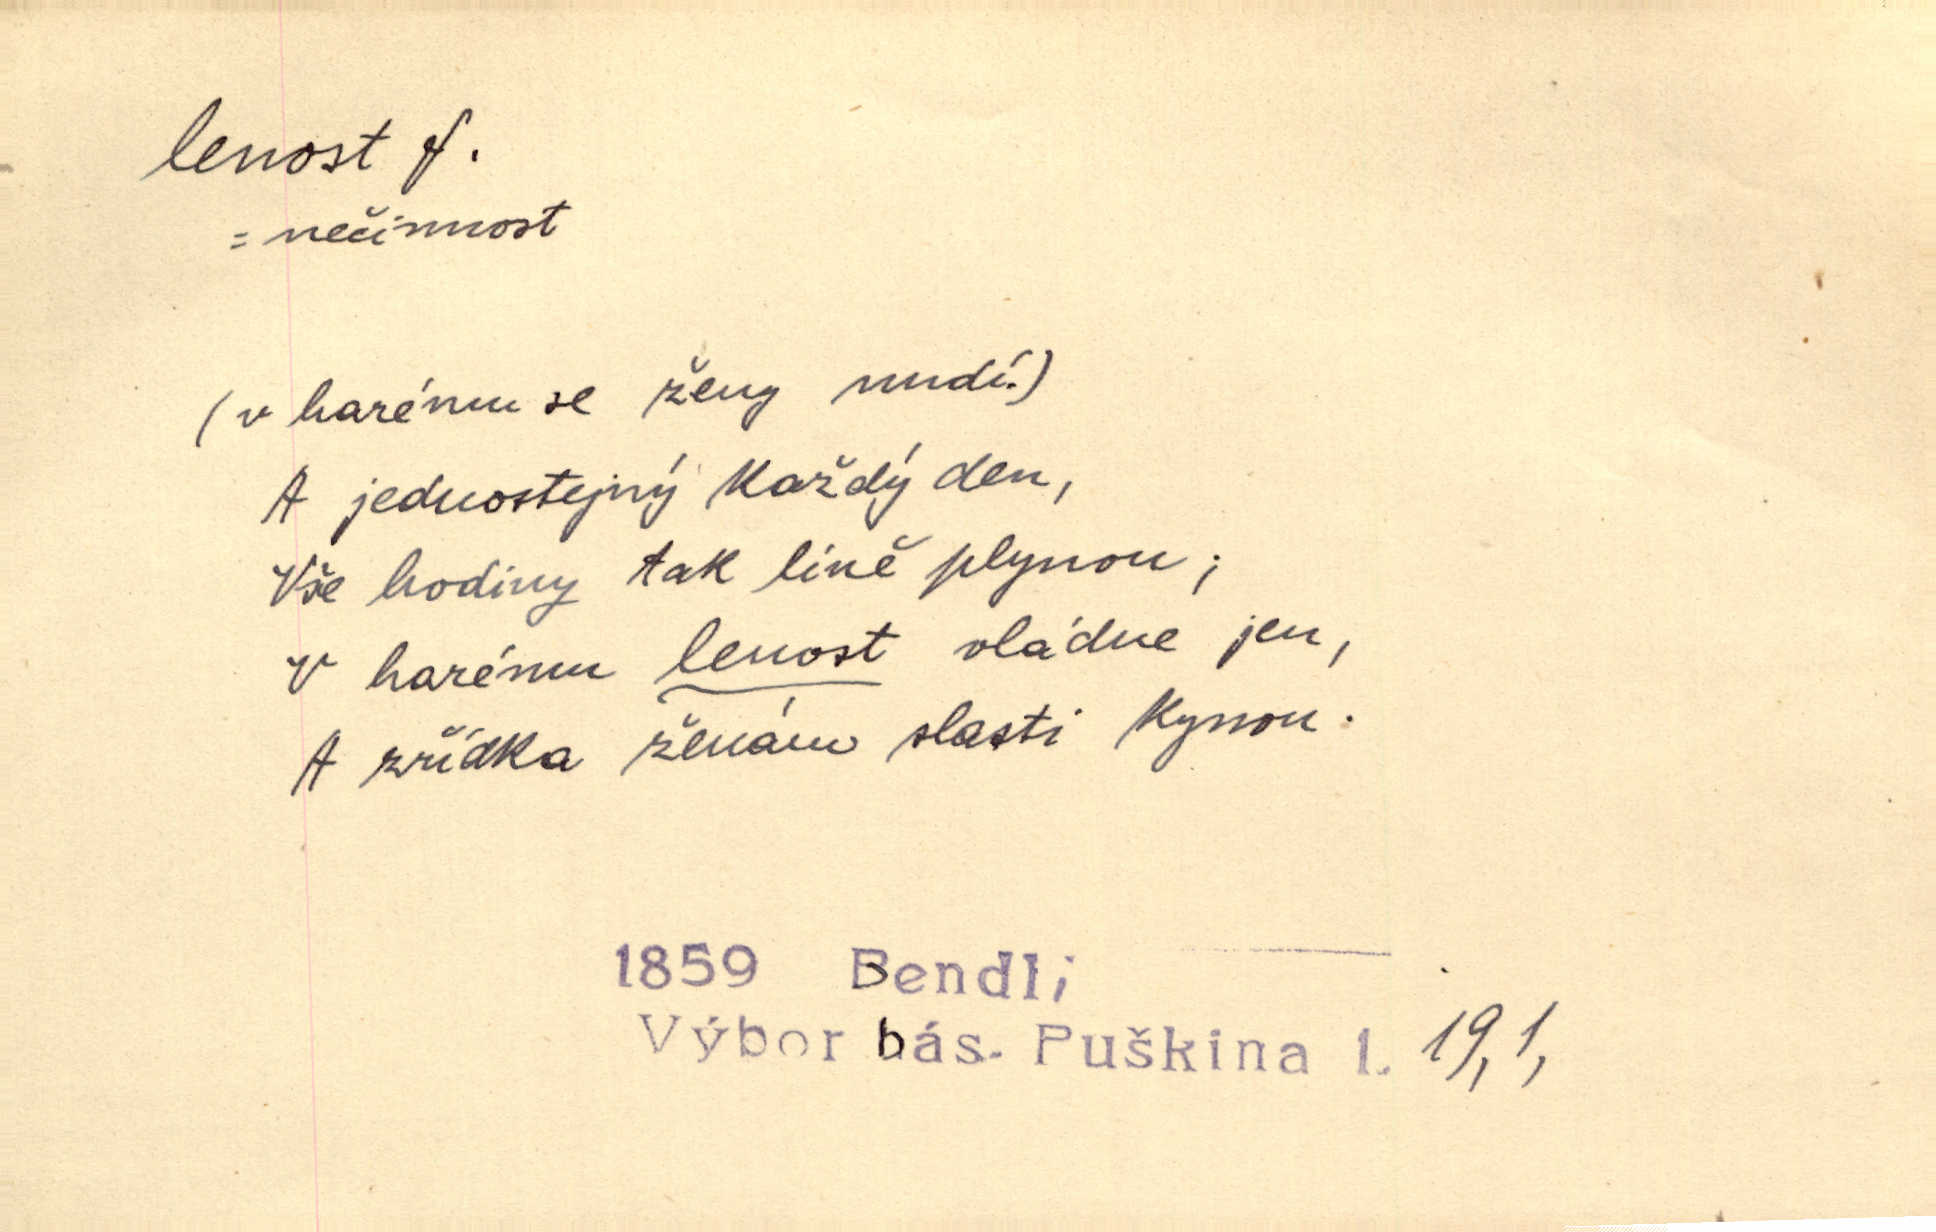 lenost f.
= nečinnost
(v harému se ženy nudí.)
A jednostejný každý den,
Vše hodiny tak líně plynou;
V harému lenost vládne jen,
A zřídka ženám slasti kynou.
1859 Bendl;
Výbor bás. Puškina 1. 19, 1,